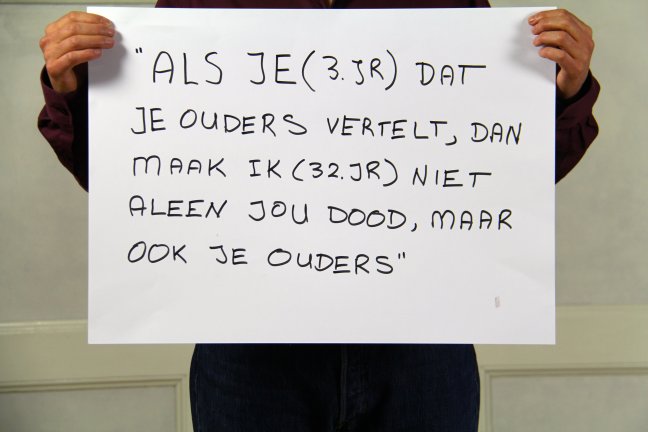 "ALS JE (3.JR) DAT
JE OUDERS VERTELT, DAN
MAAK IK (32.JR) NIET
ALEEN JOU DOOD, MAAR
OOK JE OUDERS"